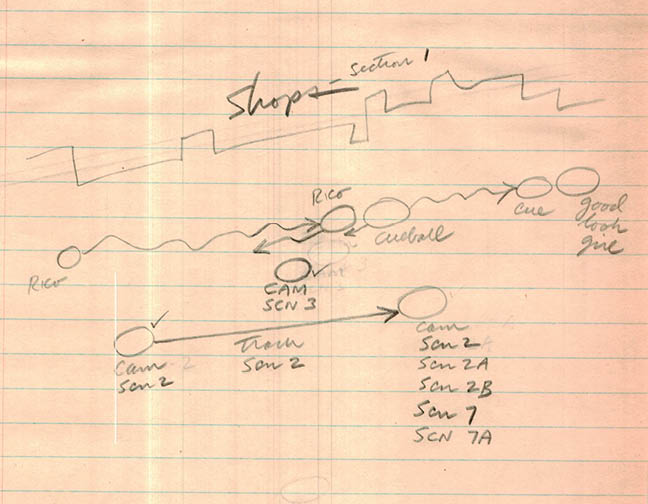 Shops - Section 1
Rico
Rico
Cueball
Cue
good
look
girl
CAM
SCN 3
Cam
Scn 2
Track
Scn 2
Cam
Scn 2
Scn 2A
Scn 2B
Scn 7
SCN 7A